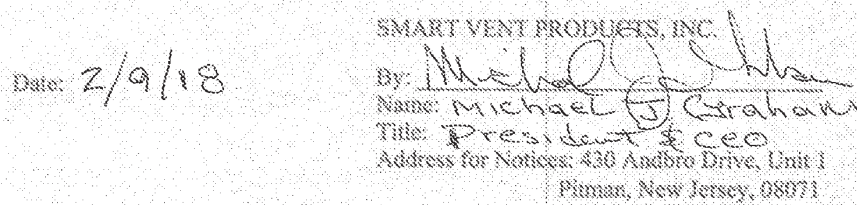 SMART VENT PRODUCTS, INC.
Date: 2/9/18
By: Michael J Graham
Name: Michael J Graham
Title: President & CEO
Address for Notices: 430 Andbro Drive, Unit 1
Pitman, New Jersey, 08071